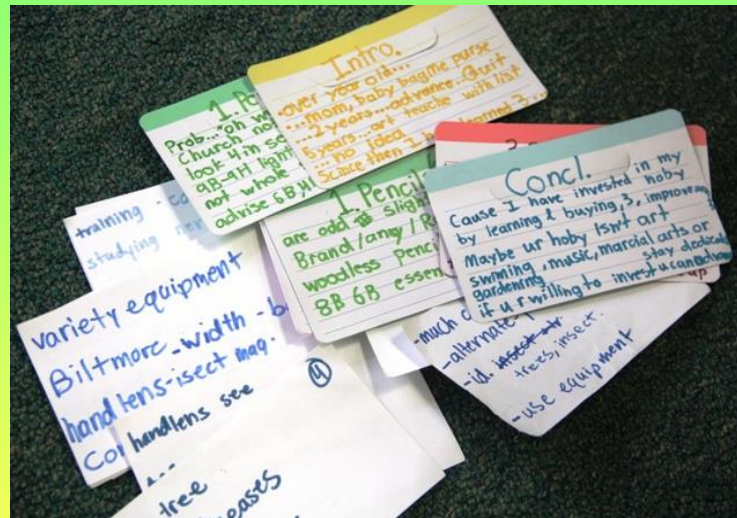 Intro.
-over year old...
...mom, baby bag me purse
...2 years...advance...Quit
5 years...art teache with list
...no idea
Scince then I learned 3...
1. Po
Prob...on
Church no
look 4 in
9B-9H light
not whole
advise 6B,4
1. Pencils
are odd slig
Brand/any/
woodless penc
8B 6B essen
Concl.
Cause I have invested in my
hoby
by learning & buying 3, improve
Maybe ur hoby isn't art
swming, music, marcial arts or
gardening stay dedica
if u r willing to invest u can
training -
studying
variety equipment
Biltmore - width -
hand lens-isect mag.
Co
4
handlens see
tree
eases
-much
-alternate
-id. insect
trees, insect.
-use equipment